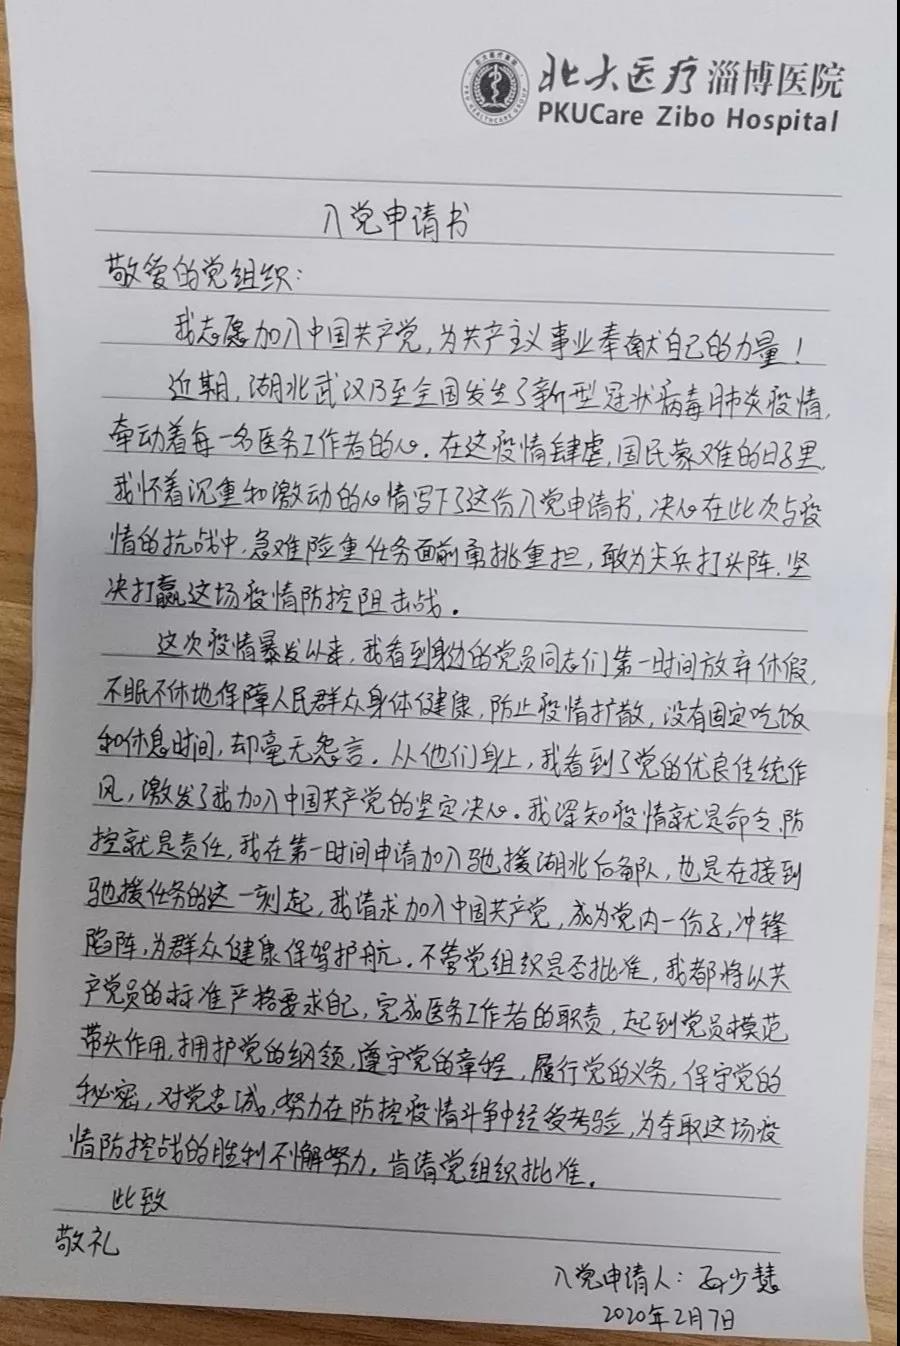 北大医疗淄博医院
PKUCare Zibo Hospital
入党申请书
敬爱的党组织：
我志愿加入中国共产党，为共产主义事业奉献自己的力量！
近期，湖北武汉乃至全国发生了新型冠状病毒肺炎疫情，
牵动着每一名医务工作者的心。在这疫情肆虐，国民蒙难的日子里，
我怀着沉重和激动的心情写下了这份入党申请书，决心在此次与疫
情的抗战中，急难险重任务面前勇挑重担，敢为尖兵打头阵，坚
决打赢这场疫情防控阻击战。
这次疫情暴发以来，我看到身边的党员同志们第一时间放弃休假，
不眠不休地保障人民群众身体健康，防止疫情扩散，没有固定吃饭
和休息时间，却毫无怨言。从他们身上，我看到了党的优良传统作
风，激发了我加入中国共产党的坚定决心。我深知疫情就是命令，防
控就是责任，我在第一时间申请加入驰援湖北后备队，也是在接到
驰援任务的这一刻起，我请求加入中国共产党，成为党内一份子，冲锋
陷阵，为群众健康保驾护航。不管党组织是否批准，我都将以共
产党员的标准严格要求自己，完成医务工作者的职责，起到党员模范
带头作用，拥护党的纲领，遵守党的章程，履行党的义务，保守党的
秘密，对党忠诚，努力在防控疫情斗争中经受考验，为夺取这场疫
情防控战的胜利不懈努力，肯请党组织批准。
此致
敬礼
入党申请人：少慧
2020年2月7日